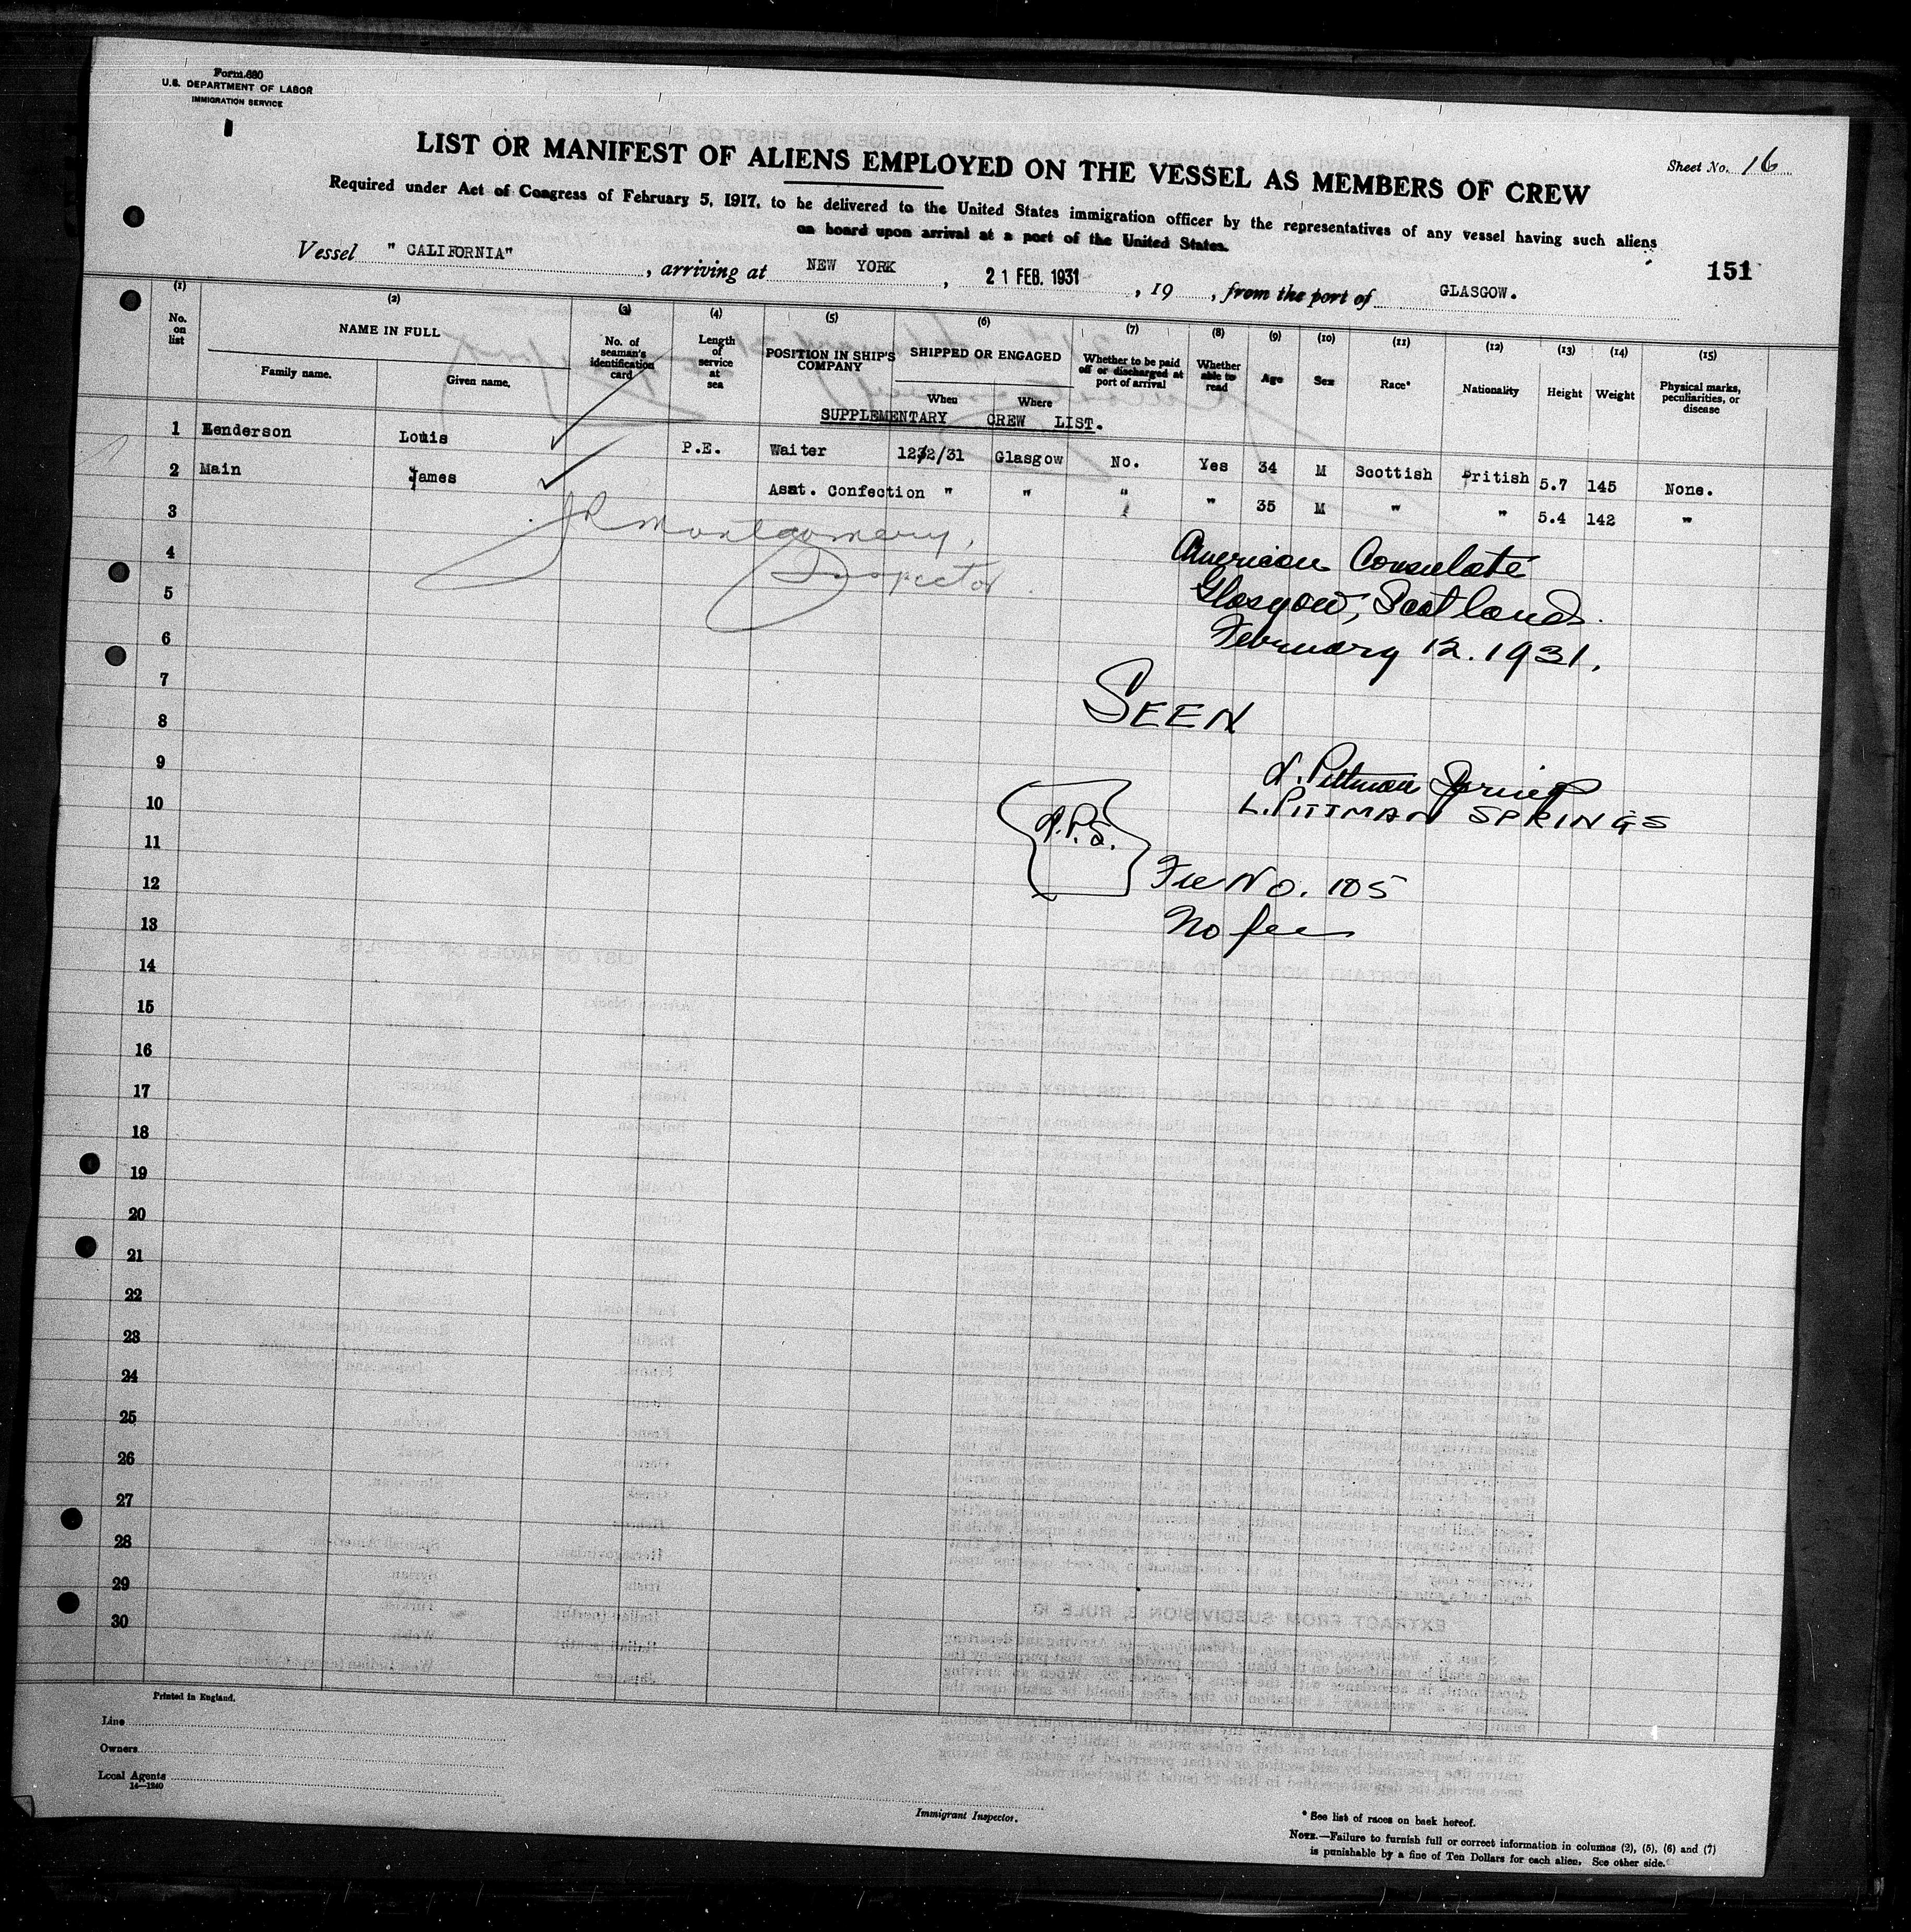 Form 680
U.S. DEPARTMENT OF LABOR
IMMIGRATION SERVICE
LIST OR MANIFEST OF ALIENS EMPLOYED ON THE VESSEL AS MEMBERS OF CREW
Sheet No. 16
Required under Act of Congress of February 5, 1917, to be delivered to the United States immigration officer by the representatives of any vessel having such aliens
on board upon arrival at a port of the United States.
151
Vessel "CALIFORNIA", arriving at NEW YORK, 21 FEB. 1931, 19 , from the port of GLASGOW.
(1) (2) (3) (4) (5) (6) (7) (8) (9) (10) (11) (12) (13) (14) (15)
No. on list
NAME IN FULL
Family name.
Given name.
No. of seaman's identification card
Length of service at sea
POSITION IN SHIP'S COMPANY
SHIPPED OR ENGAGED
When
Where
Whether to be paid off or discharged at port of arrival
Whether able to read
Age
Sex
Race*
Nationality
Height
Weight
Physical marks, peculiarities, or disease
SUPPLEMENTARY CREW LIST.
1 Henderson Louis P.E. Waiter 12/2/31 Glasgow No. Yes 34 M Scottish British 5.7 145 None.
2 Main James Asst. Confection " " " " 35 M " " 5.4 142 "
3
JR Montgomery,
Inspector
American Consulate
Glasgow, Scotland.
February 12. 1931.
SEEN
L. Pittman Springs
L. PITTMAN SPRINGS
L.P.S.
Fee No. 105
No fee
4
5
6
7
8
9
10
11
12
13
14
15
16
17
18
19
20
21
22
23
24
25
26
27
28
29
30
Printed in England.
Line
Owners
Local Agents
14—1240
Immigrant Inspector.
* See list of races on back hereof.
NOTE.—Failure to furnish full or correct information in columns (2), (5), (6) and (7)
is punishable by a fine of Ten Dollars for each alien. See other side.